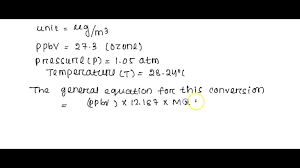 unit = ug/m3
ppbv = 27.3 (ozone)
pressure (P) = 1.05 atm
Temperature (T) = 28.24°C
The general equation for this conversion
= (ppbv) × 12.187 × MQ